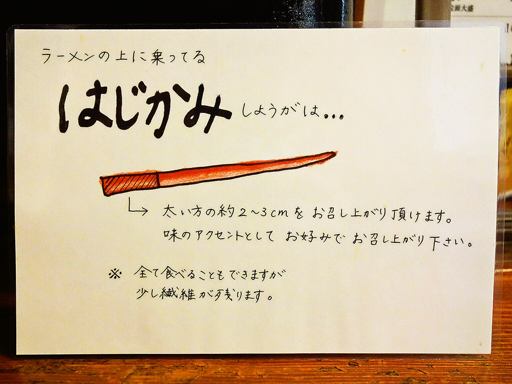 ラーメンの上に乗ってる
はじかみしょうがは...
太い方の約2~3cmをお召し上がり頂けます。
味のアクセントとしてお好みでお召し上がり下さい。
※ 全て食べることもできますが
少し繊維が残ります。